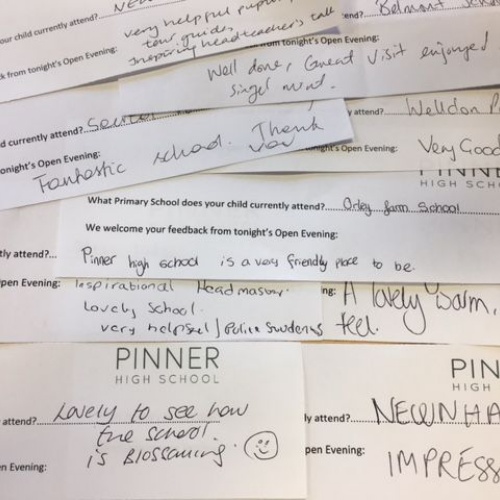 our child currently attend?
very helpful pupil
tour guides,
Inspiring headteacher's talk
k from tonight's Open Evening:
end? Belmont
from tonight's Open Evening:
Well done, Great Visit enjoyed
d currently attend?
Fantastic school. Thank
you
onight's Open Evening:
attend? Welldon P
onight's Open Evening: Very Good
HIGH SCH
What Primary School does your child currently attend? Orley farm School
We welcome your feedback from tonight's Open Evening:
Pinner high school is a very friendly place to be.
tly attend?
pen Evening: Inspirational Headmaster.
Lovely School.
very helpful / Polite Students
ng: A lovely warm,
feel.
PINNER
HIGH SCHOOL
attend? Lovely to see how
the school.
is Blossoming.
n Evening:
PIN
HIGH
ly attend? NEWNHA
pen Evening:
IMPRESS